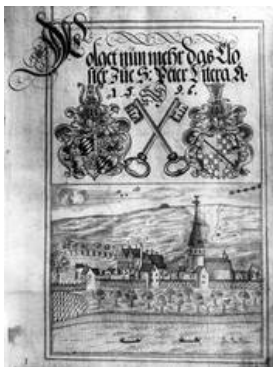 Volget nun mehr das Clo
ster Züe S: Peter Litera A.
1 5 9 6.